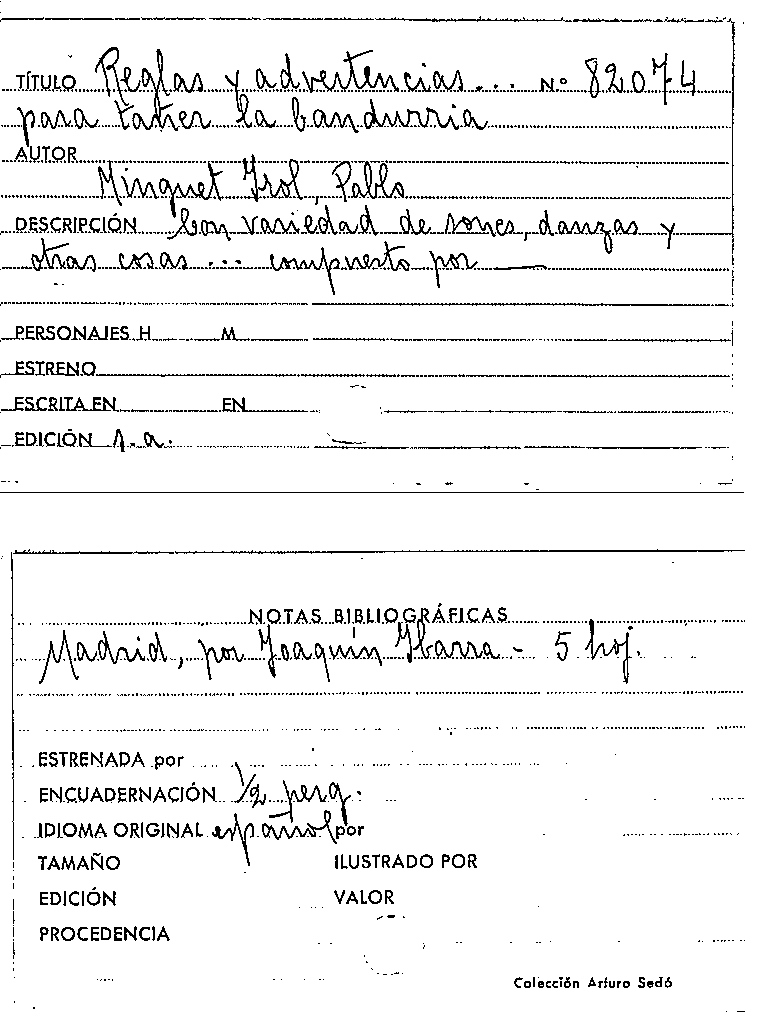 TÍTULO Reglas y advertencias... Nº 82074
para tañer la bandurria
AUTOR
Minguet Yrol, Pablo
DESCRIPCIÓN Con variedad de sones, danzas y
otras cosas ... compuesto por ——
PERSONAJES H M
ESTRENO
ESCRITA EN EN
EDICIÓN s.a.
NOTAS BIBLIOGRÁFICAS
Madrid, por Joaquín Ybarra - 5 hoj.
ESTRENADA por
ENCUADERNACIÓN 1/2 perg.
IDIOMA ORIGINAL español por
TAMAÑO ILUSTRADO POR
EDICIÓN VALOR
PROCEDENCIA
Colección Arturo Sedó